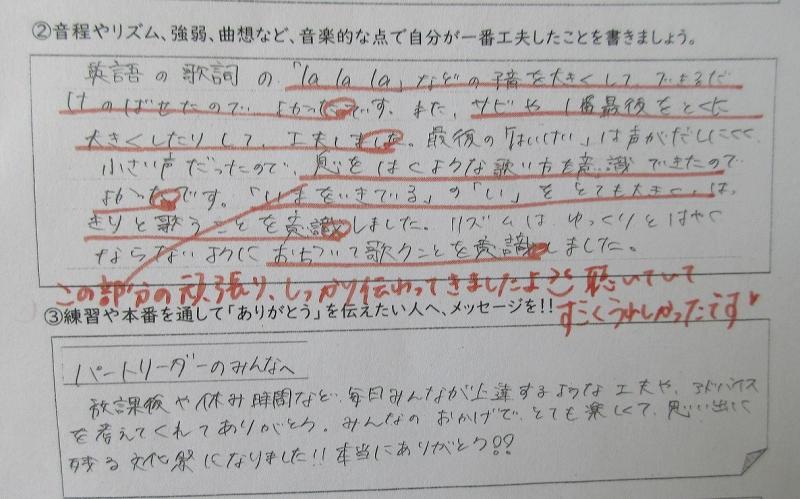 ②音程やリズム、強弱、曲想など、音楽的な点で自分が一番工夫したことを書きましょう。
英語の歌詞の「la la la」などの子音を大きくして、できるだ
けのばせたので、よかったです。また、サビや1番最後をとくに
大きくしたりして、工夫しました。最後の「はいけい」は声がだしにくく
小さい声だったので、息をはくような歌い方を意識できたので
よかったです。「いまをいきている」の「い」をとても大きく、は、
きりと歌うことを意識しました。リズムはゆっくりとはやく
ならないように おちついて歌うことを意識しました。
この部分の頑張り、しっかり伝わってきましたよ 聴いていて
すごくうれしかったです
③練習や本番を通して「ありがとう」を伝えたい人へ、メッセージを!!
パートリーダーのみんなへ
放課後や休み時間など、毎日みんなが上達するような工夫や、アドバイス
を考えてくれてありがとう。みんなのおかげで、とても楽しくて、思い出に
残る文化祭になりました!!本当にありがとう??